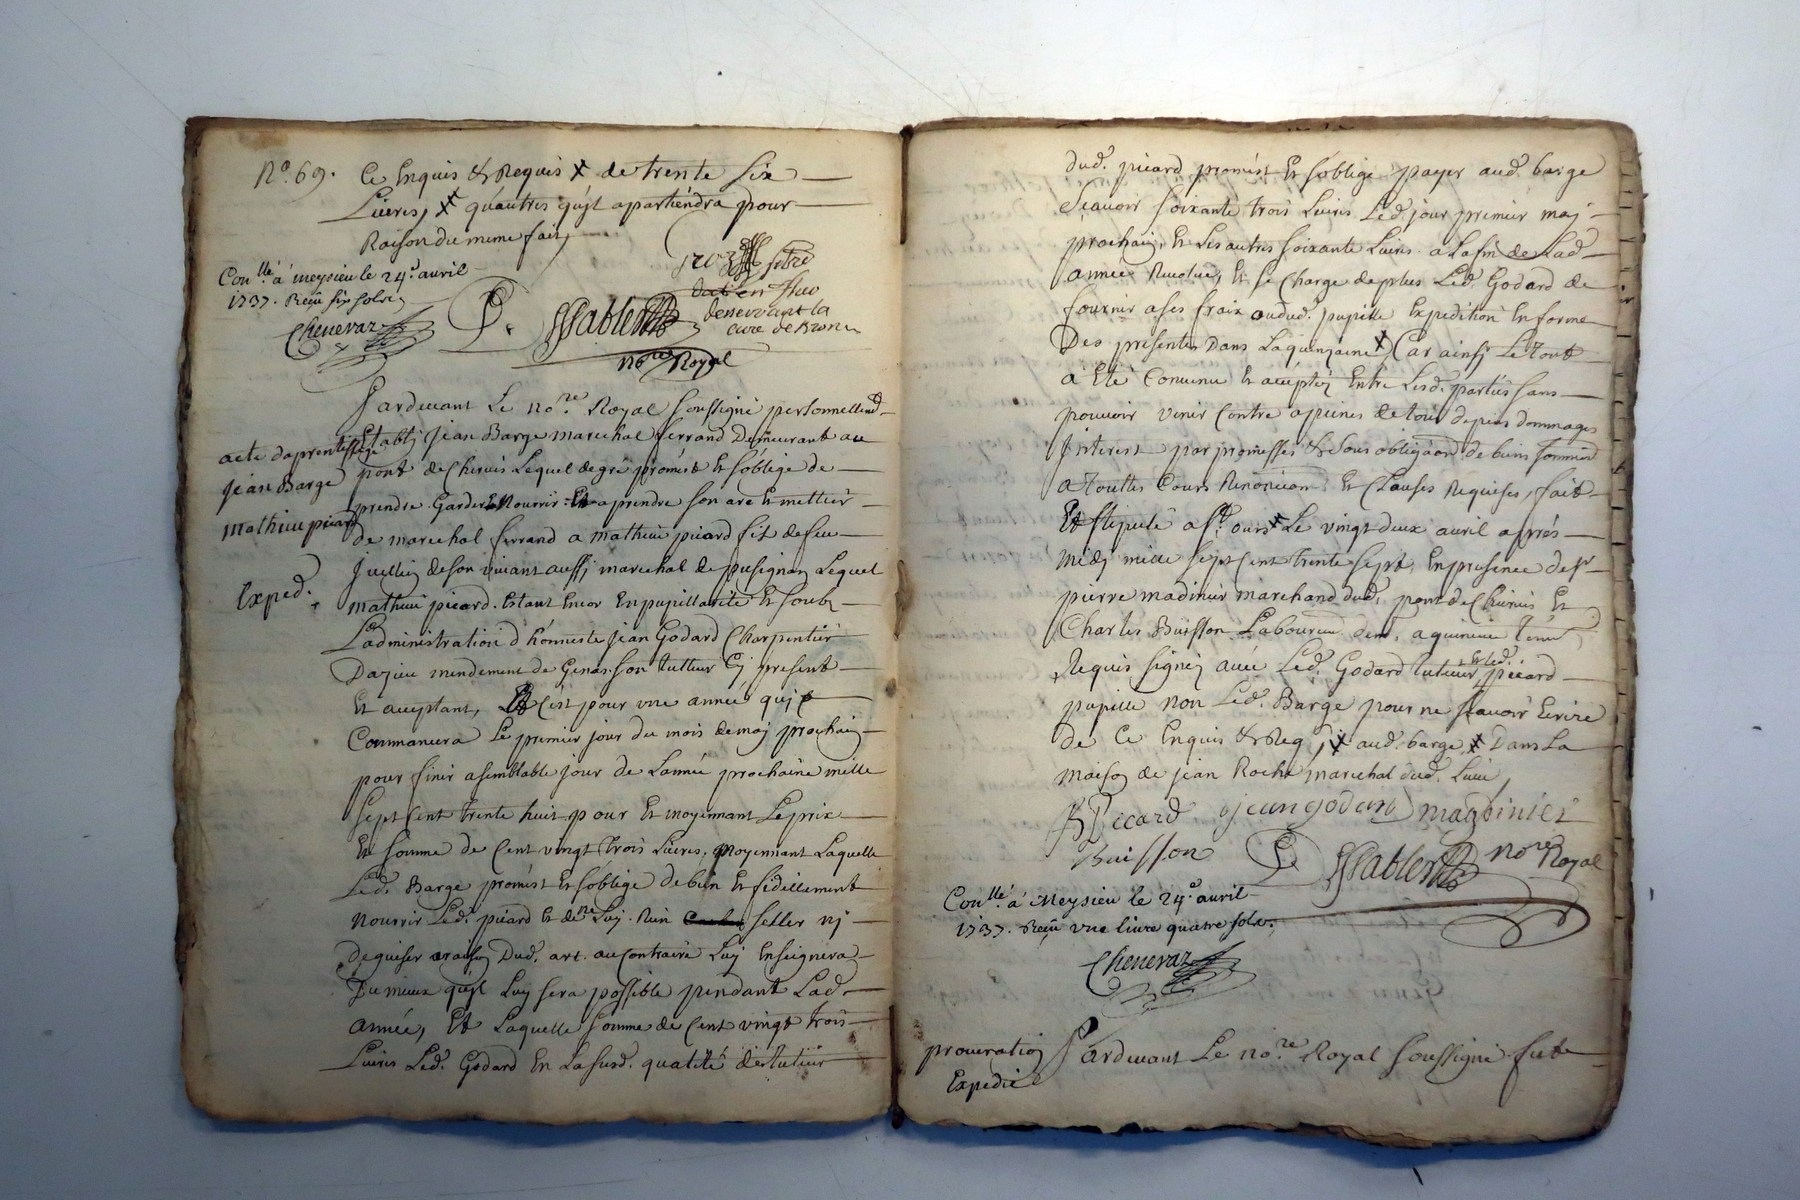 No. 69.
Ce Enquis & Requis x de trente six
Livres, x qu'autres qu'jl apartiendra pour
Raison du meme fait,
Con.llé à meysieu le 24e avril
1737. Reçu six sols
Chenevaz
Sablent
deservant la
cure de Bron
no.re Royal
Pardevant Le no.re Royal soussigné personnellemt
Etablj jean Barge marechal ferrand Demeurant au
acte daprentissage
jean Barge
mathieu picard
Exped.
pont de Cheruis Lequel de gré promest Et s'oblige de
prendre Garder Et Nourrir Et aprendre son art Et mettier
de marechal ferrand a mathieu picard fils de feu
jullien de son vivant aussj marechal de pusignan Lequel
mathieu picard. Estant Encor En pupillarité Et soubz
L'administration d'honneste jean Godard Charpentier
Dazieu mendement de Genas son tutteur Cy present
Et acceptant, C'est pour une année quj
Commancera Le premier jour du mois de maj prochain
pour finir a semblable jour de L'année prochaine mille
sept Cent trente huit pour Et moyennant Le prix
Et somme de Cent vingt trois Livres, moyennant Laquelle
Led. Barge promest Et s'oblige de bien Et fidellement
nourrir Led. picard Et de ne Luj Rien seller nj
deguiser a raison Dud. art. au contraire Luy Enseignera
Du mieux qu'jl Luy sera possible pendant Lad.
année, Et Laquelle somme de Cent vingt trois
Livres Led. Godard En La susd. qualité de tuteur
dud. picard promest Et s'oblige payer aud. barge
Sçavoir soixante trois Livres Led. jour premier maj
prochain, Et Les autres soixante Livres a La fin de Lad.
année Revolue, Et se Charge de plus Led. Godard de
fournir a ses fraix audud. pupille Expedition En forme
Des presentes Dans La quinzaine x Car ainsj Le tout
a Eté Convenu Et accepté Entre Lesd. parties sans
pouvoir venir Contre a peines de tous depens dommages
Interest par promesses & sous obligaon de biens
a touttes Cours Renonciaon Et Clauses Requises, fait
Et stipulé a st. ours x Le vingt deux avril apres
midj mille sept Cent trente sept, En presence de sr
pierre madinier marchand dud. pont de Cheruis Et
Charles Buisson Laboureur dem. a
Requis signez avec Led. Godard tuteur, Et led. picard
pupille non Led. Barge pour ne sçavoir Ecrire
de Ce Enquis & Req. x aud. barge x Dans La
maison de jean Roche marechal dud. Lieu,
Picard jean godard madinier
Buisson Sablent no.re Royal
Con.llé à Meysieu le 24e avril
1737. Reçu une livre quatre sols.
Chenevaz
procuration
Expedié
Pardevant Le no.re Royal soussigné fut